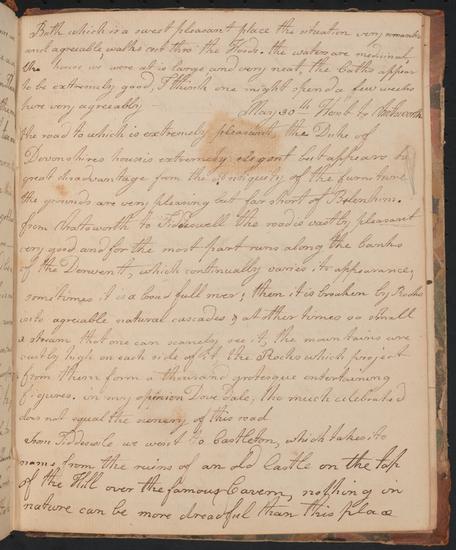 Bath which is a sweet pleasant place the situation very romantic
and agreeable, walks cut thro the Woods. the waters are medicinal,
the house we were at is large and very neat, the Baths appear
to be extremely good, I think one might spend a few weeks
here very agreeably
May 30th Went to Chatsworth
the road to which is extremely pleasant the Duke of
Devonshires house is extremely elegant but appears to
great disadvantage from the antiquety of the furniture
the grounds are very pleasing but far short of Blenheim.
from Chatsworth to Tideswell the road is vastly pleasant
very good and for the most part runs along the banks
of the Derwent, which continually varies its appearance,
sometimes it is a broad full river; then it is broken by Rocks
into agreable natural cascades & at other times so small
a stream that one can scarcely see it, the mountains are
vastly high on each side of it the Rocks which project
from them form a thousand grotesque entertaining
figures. in my opinion Dove Dale, tho much celebrated
does not equal the scenery of this road
from Tiddesole we went to Castleton, which takes its
name from the ruins of an old Castle on the top
of the Hill over the famous Cavern, nothing in
nature can be more dreadful than this place